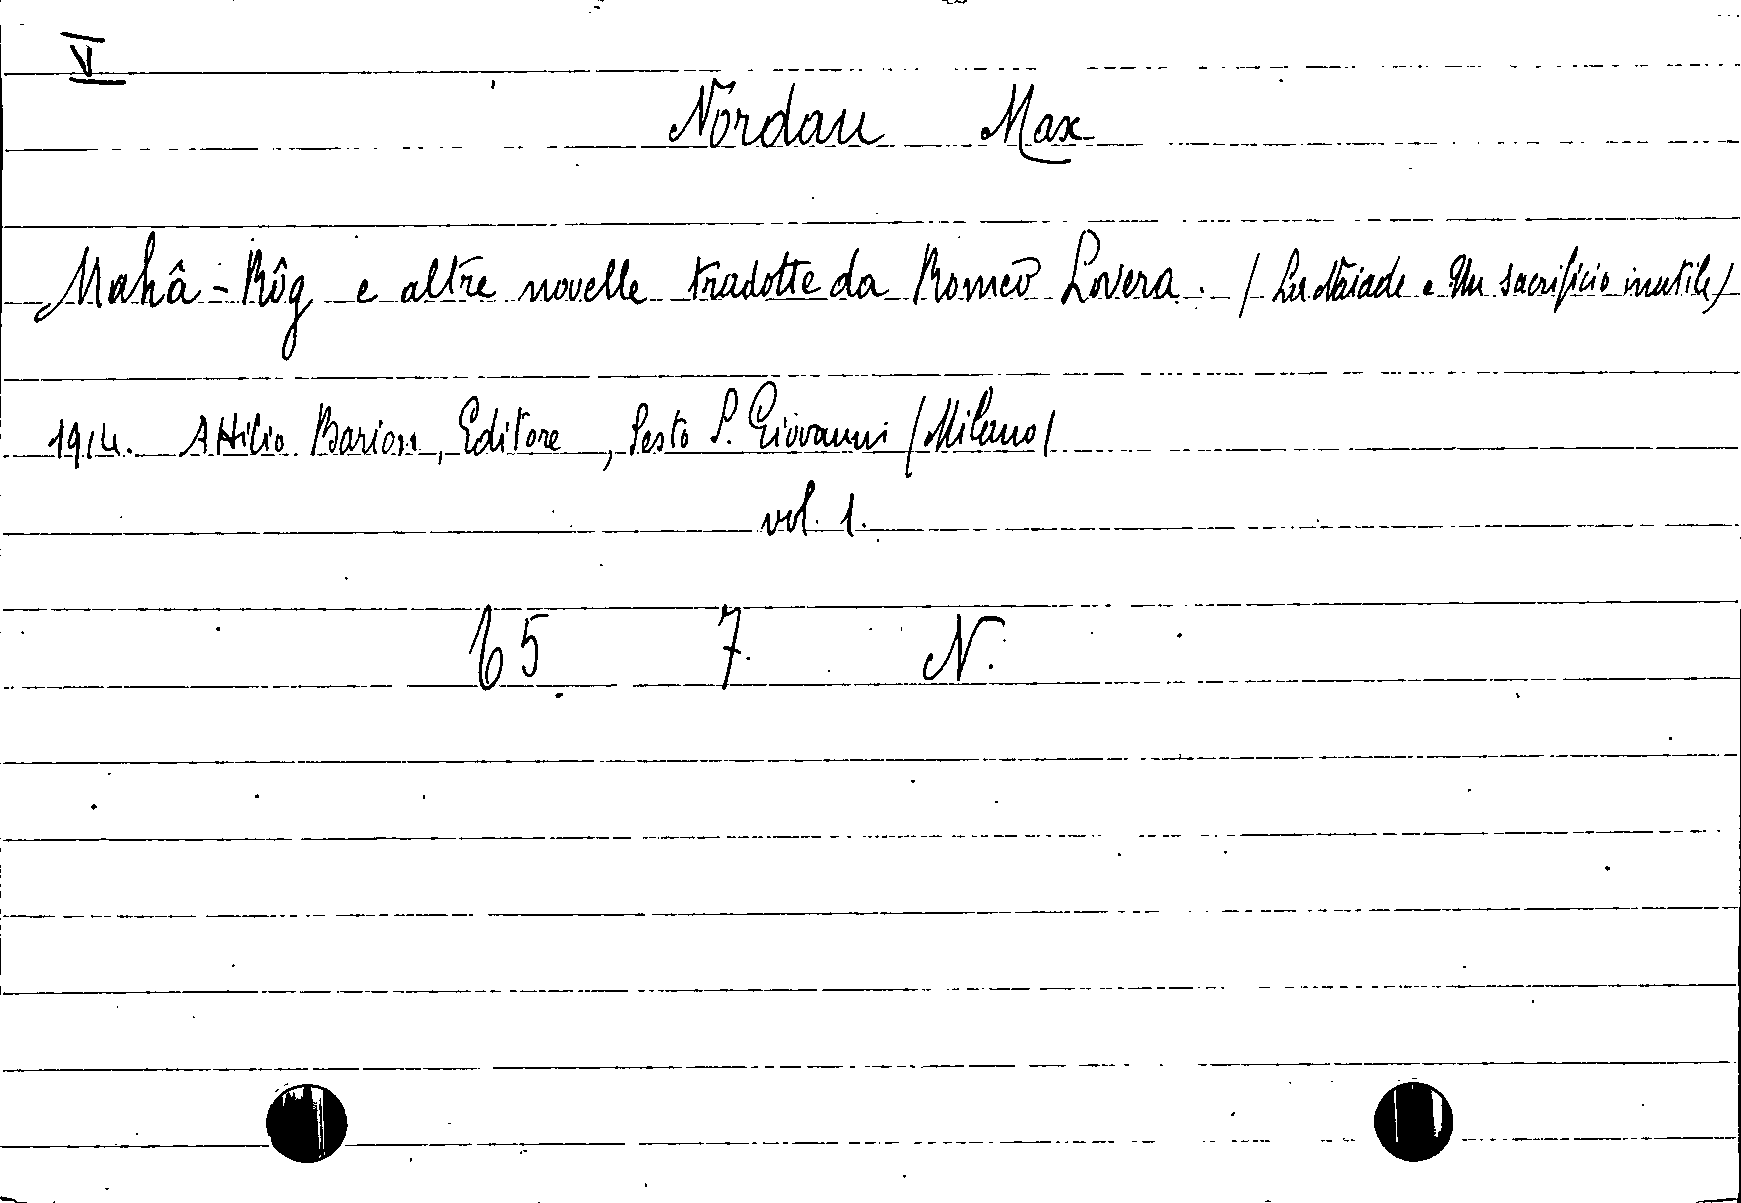 V
Nordau Max
Mahâ-Rôg e altre novelle tradotte da Romeo Lovera. (La Naiade e Un sacrificio inutile)
1914. Attilio Barion, Editore, Sesto S. Giovanni (Milano)
vol. 1.
65 7 N.